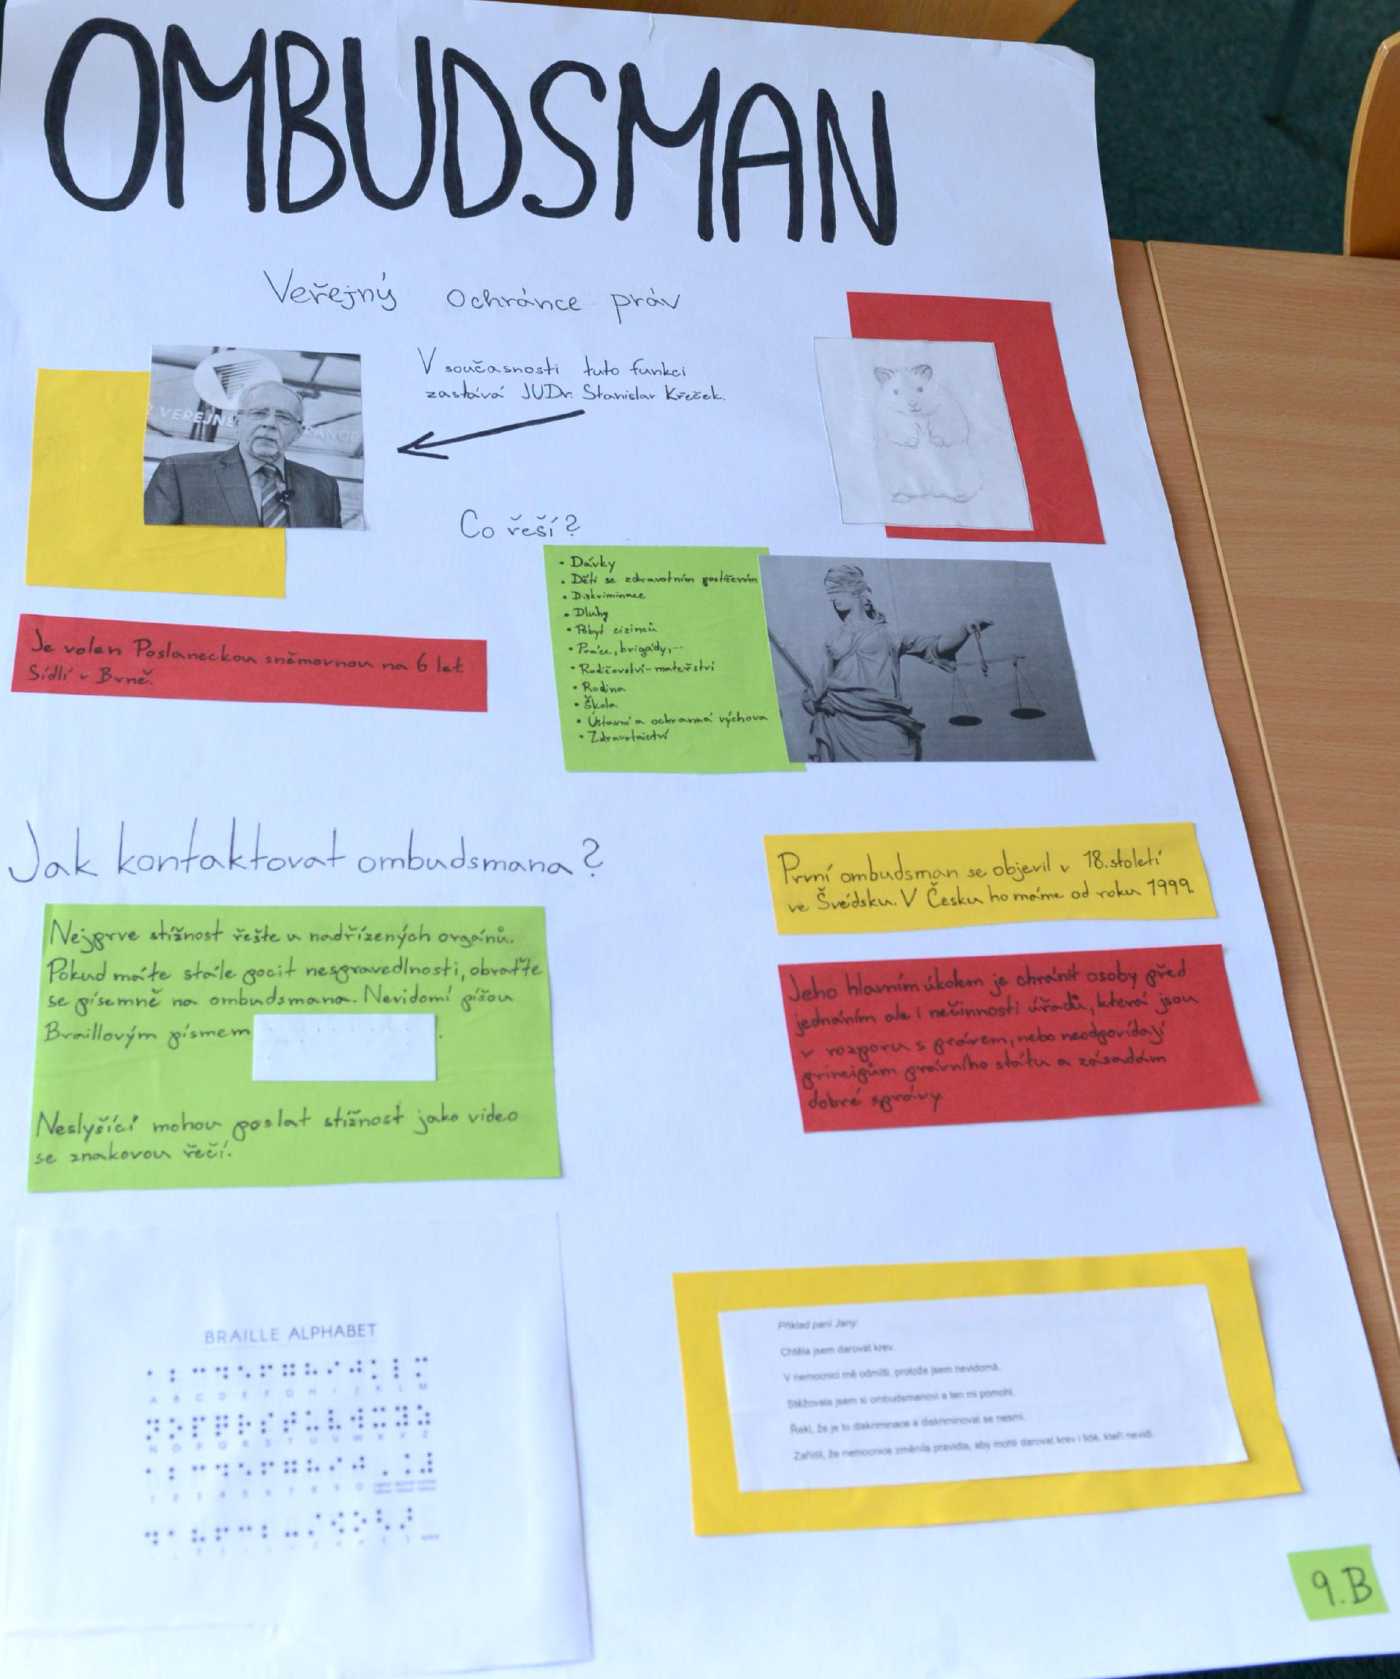 OMBUDSMAN
Veřejný ochránce práv
V současnosti tuto funkci
zastává JUDr. Stanislav Křeček.
VEŘEJN
Co řeší?
• Dávky
• Děti se zdravotním postižením
• Diskriminace
• Dluhy
• Pobyt cizinců
• Práce, brigády,...
• Rodičovství-mateřství
• Rodina
• Škola
• Ústavní a ochranná výchova
• Zdravotnictví
Je volen Poslaneckou sněmovnou na 6 let
Sídlí v Brně.
Jak kontaktovat ombudsmana?
Nejprve stížnost řešte u nadřízených orgánů.
Pokud máte stále pocit nespravedlnosti, obraťte
se písemně na ombudsmana. Nevidomí píšou
Braillovým písmem .
Neslyšící mohou poslat stížnost jako video
se znakovou řečí.
První ombudsman se objevil v 18.století
ve Švédsku. V Česku ho máme od roku 1999.
Jeho hlavním úkolem je chránit osoby před
jednáním ale i nečinností úřadů, která jsou
v rozporu s právem, nebo neodpovídají
principům právního státu a zásadám
dobré správy
BRAILLE ALPHABET
A B C D E F G H I J K L M
N O P Q R S T U V W X Y Z
1 2 3 4 5 6 7 8 9 0
Příklad paní Jany:
Chtěla jsem darovat krev.
V nemocnici mě odmítli, protože jsem nevidomá.
Stěžovala jsem si ombudsmanovi a ten mi pomohl.
Řekl, že je to diskriminace a diskriminovat se nesmí.
Zařídil, že nemocnice změnila pravidla, aby mohli darovat krev i lidé, kteří nevidí.
9.B